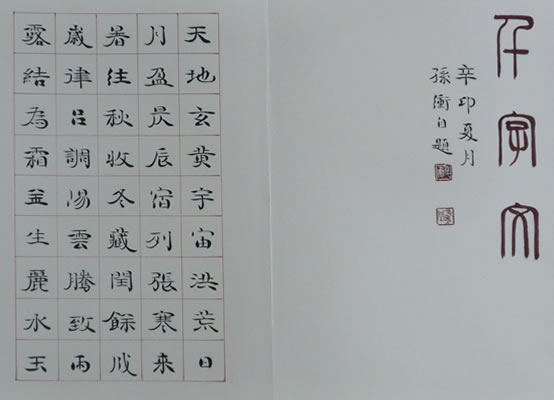 千字文
辛卯夏月
孫自題
天地玄黃宇宙洪荒日
月盈昃辰宿列張寒來
暑往秋收冬藏閏餘成
歲律呂調陽雲騰致雨
露結為霜金生麗水玉